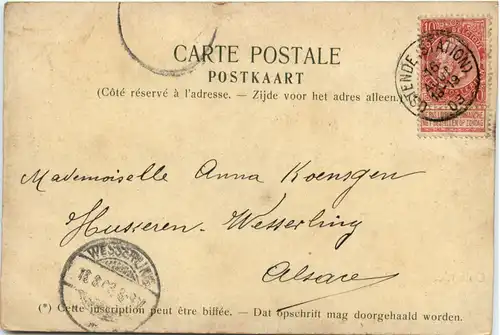 CARTE POSTALE
POSTKAART
(Côté réservé à l'adresse. — Zijde voor het adres alleen.)
OSTENDE (STATION)
Mademoiselle Anna Koensgen
Husseren-Wesserling
Alsace
WESSERLING
(*) Cette inscription peut être biffée. — Dat opschrift mag doorgehaald worden.